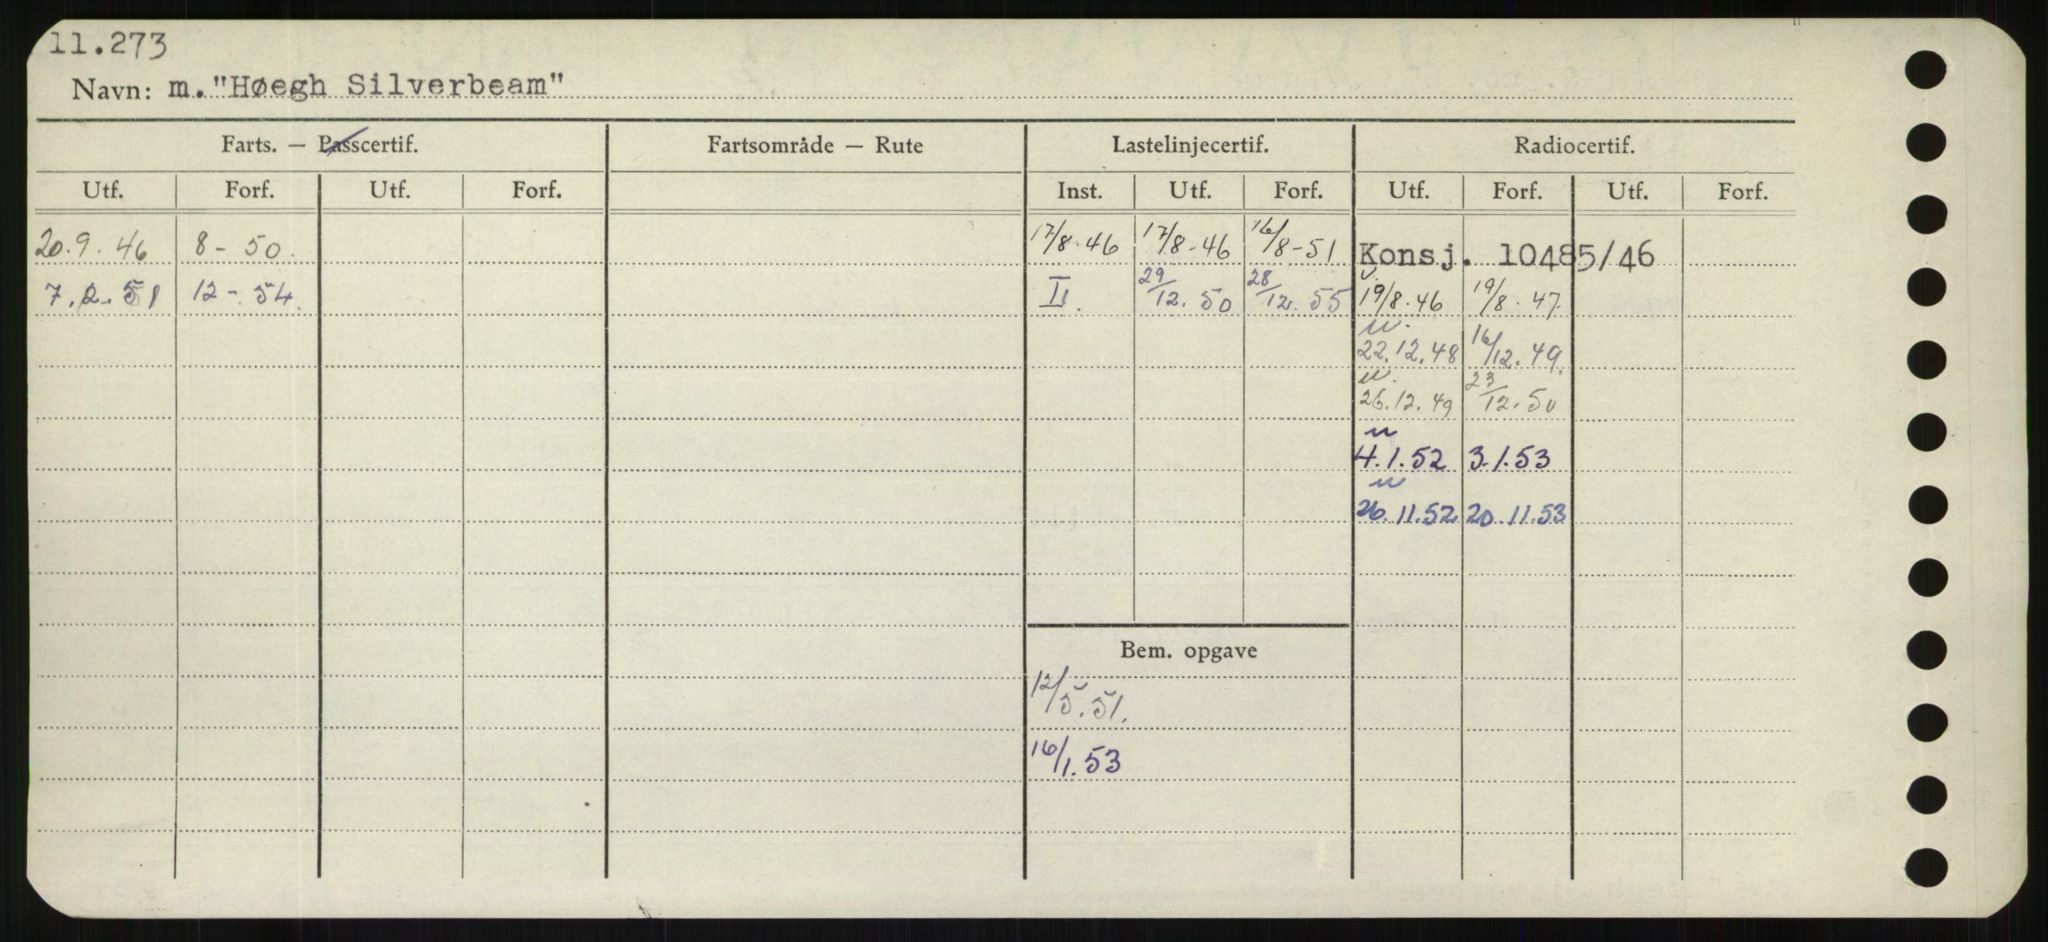 11.273
Navn: m. "Høegh Silverbeam"
Farts. — Passcertif. Fartsområde — Rute Lastelinjecertif. Radiocertif.
Utf. Forf. Utf. Forf. Inst. Utf. Forf. Utf. Forf. Utf. Forf.
20.9.46 8-50. 17/8.46 17/8-46 16/8-51 Konsj. 10485/46
7.2.51 12-54. II. 29/12.50 28/12.55 19/8.46 19/8.47.
22.12.48 16/12.49.
26.12.49 23/12.50
4.1.52 3.1.53
26.11.52 20.11.53
Bem. opgave
12/5.51.
16/1.53